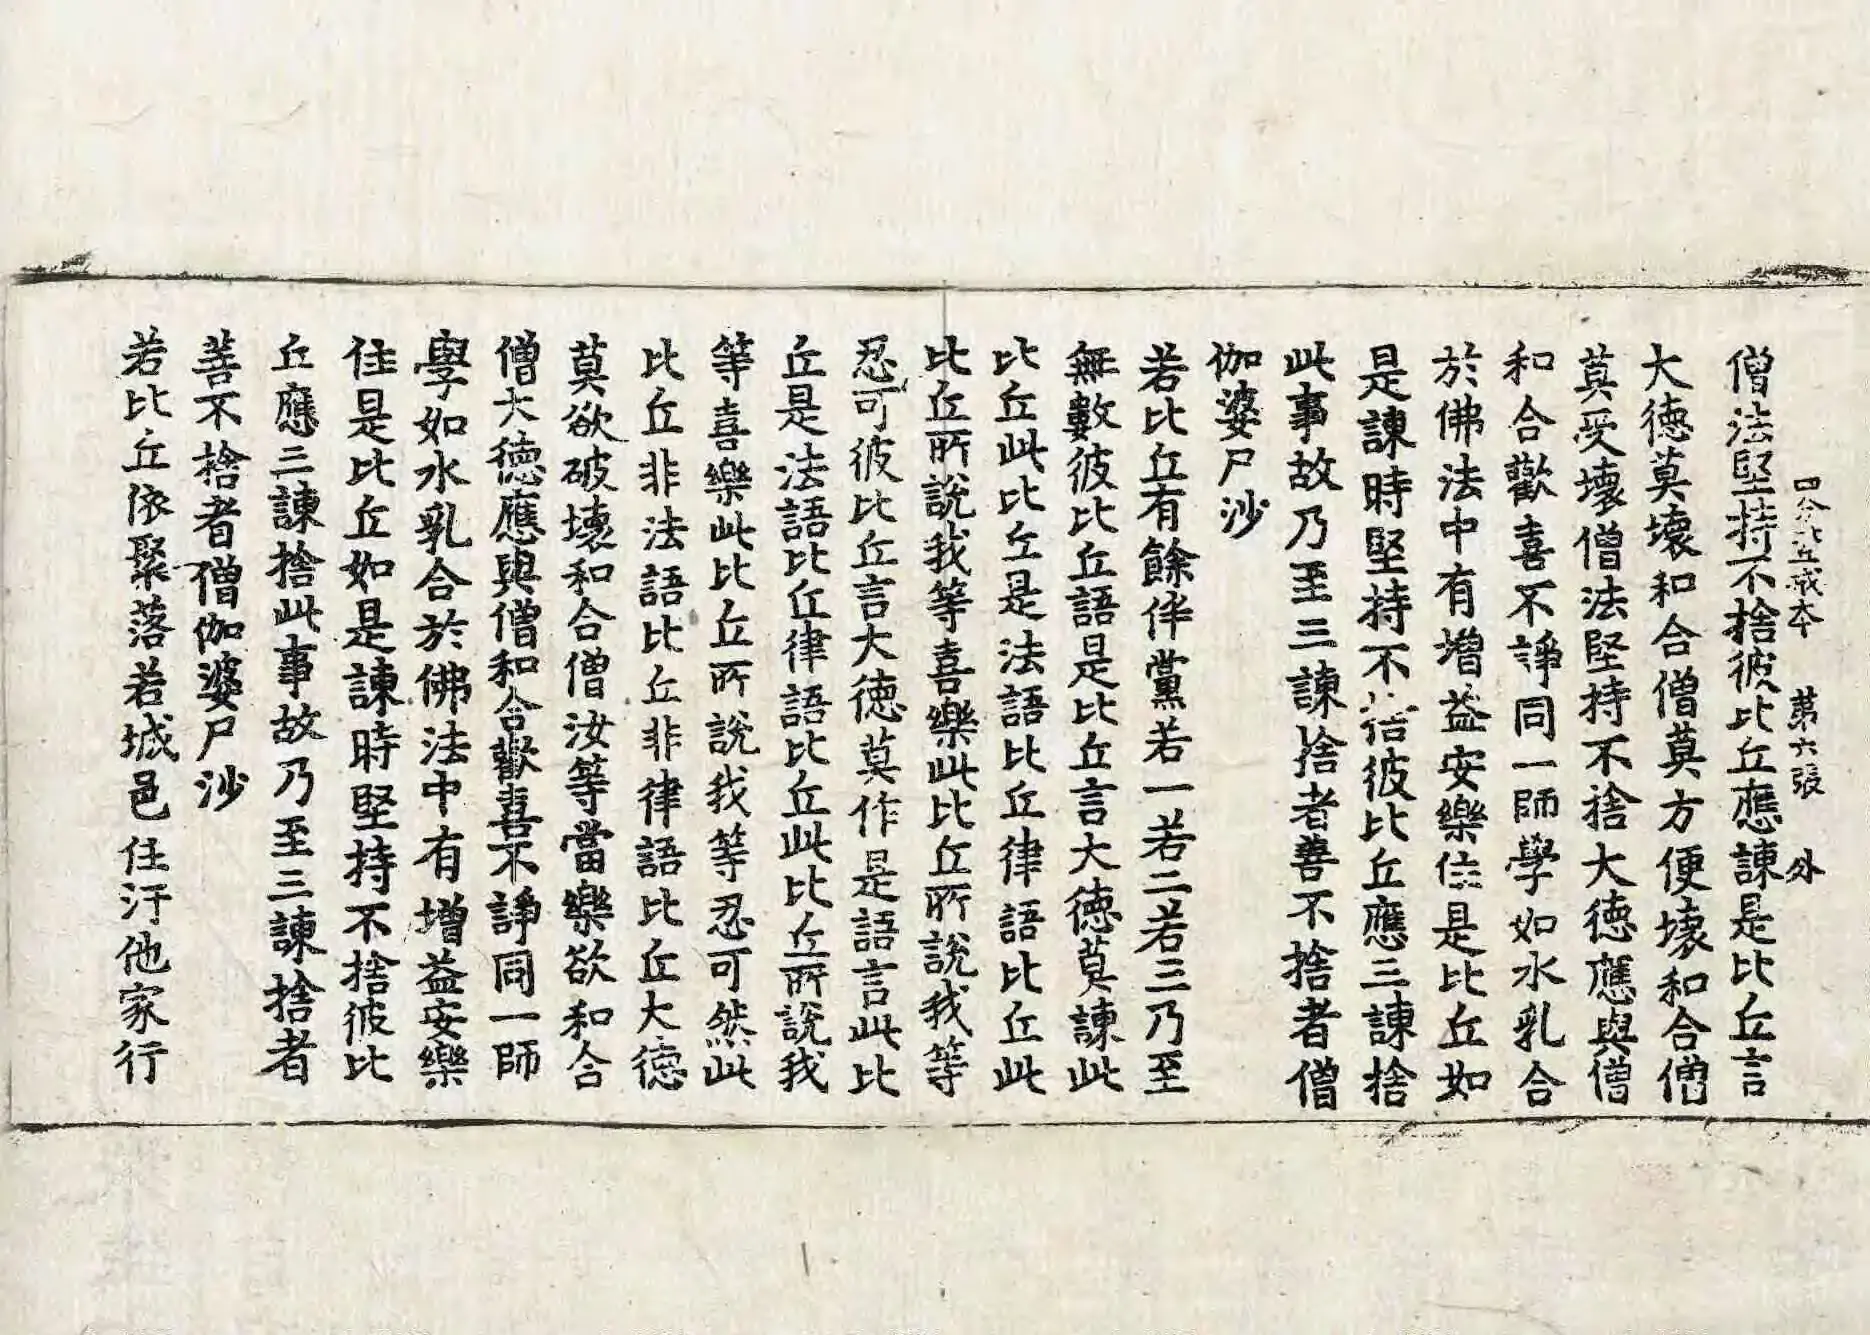 四分比丘戒本　第六張　外
僧法堅持不捨彼比丘應諫是比丘言
大德莫壞和合僧莫方便壞和合僧
莫受壞僧法堅持不捨大德應與僧
和合歡喜不諍同一師學如水乳合
於佛法中有增益安樂住是比丘如
是諫時堅持不捨彼比丘應三諫捨
此事故乃至三諫捨者善不捨者僧
伽婆尸沙
若比丘有餘伴黨若一若二若三乃至
無數彼比丘語是比丘言大德莫諫此
比丘此比丘是法語比丘律語比丘此
比丘所說我等喜樂此比丘所說我等
忍可彼比丘言大德莫作是語言此比
丘是法語比丘律語比丘此比丘所說我
等喜樂此比丘所說我等忍可然此
比丘非法語比丘非律語比丘大德
莫欲破壞和合僧汝等當樂欲和合
僧大德應與僧和合歡喜不諍同一師
學如水乳合於佛法中有增益安樂
住是比丘如是諫時堅持不捨彼比
丘應三諫捨此事故乃至三諫捨者
善不捨者僧伽婆尸沙
若比丘依聚落若城邑住汙他家行